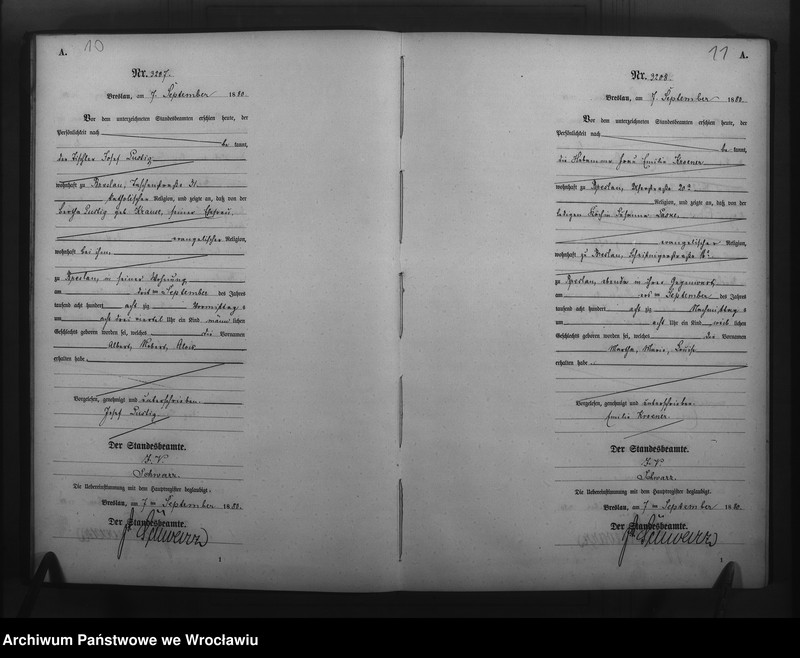 A. 10
Nr. 3207.
Breslau, am 7. September 1880.
Vor dem unterzeichneten Standesbeamten erschien heute, der
Persönlichkeit nach
be kannt,
der Tischler Josef Lustig
wohnhaft zu Breslau, Taschenstraße
katholischer Religion, und zeigte an, daß von der
Bertha Lustig geb. Krause, seiner Ehefrau,
evangelischer Religion,
wohnhaft bei ihm
zu Breslau, in seiner Wohnung
am September des Jahres
tausend acht hundert acht zig Vormittags
um acht drei viertel Uhr ein Kind männ lichen
Geschlechts geboren worden sei, welches die Vornamen
Albert, Robert, Alois
erhalten habe.
Vorgelesen, genehmigt und unterschrieben.
Josef Lustig
Der Standesbeamte.
J. V.
Schwarz.
Die Uebereinstimmung mit dem Hauptregister beglaubigt:
Breslau, am 7 ten September 1880.
Der Standesbeamte.
1
11 A.
Nr. 3208.
Breslau, am 7. September 1880.
Vor dem unterzeichneten Standesbeamten erschien heute, der
Persönlichkeit nach
be kannt,
die Hebamme Frau Emilie Kroener
wohnhaft zu Breslau,
Religion, und zeigte an, daß von der
ledigen Köchin Susanna
evangelischer Religion,
wohnhaft zu Breslau,
zu Breslau, ebenda in ihrer Gegenwart
am September des Jahres
tausend acht hundert acht zig Nachmittags
um acht Uhr ein Kind weib lichen
Geschlechts geboren worden sei, welches Vornamen
Martha, Marie, Louise
erhalten habe.
Vorgelesen, genehmigt und unterschrieben.
Emilie Kroener
Der Standesbeamte.
J. V.
Schwarz.
Die Uebereinstimmung mit dem Hauptregister beglaubigt:
Breslau, am 7 ten September 1880.
Der Standesbeamte.
1
Archiwum Państwowe we Wrocławiu